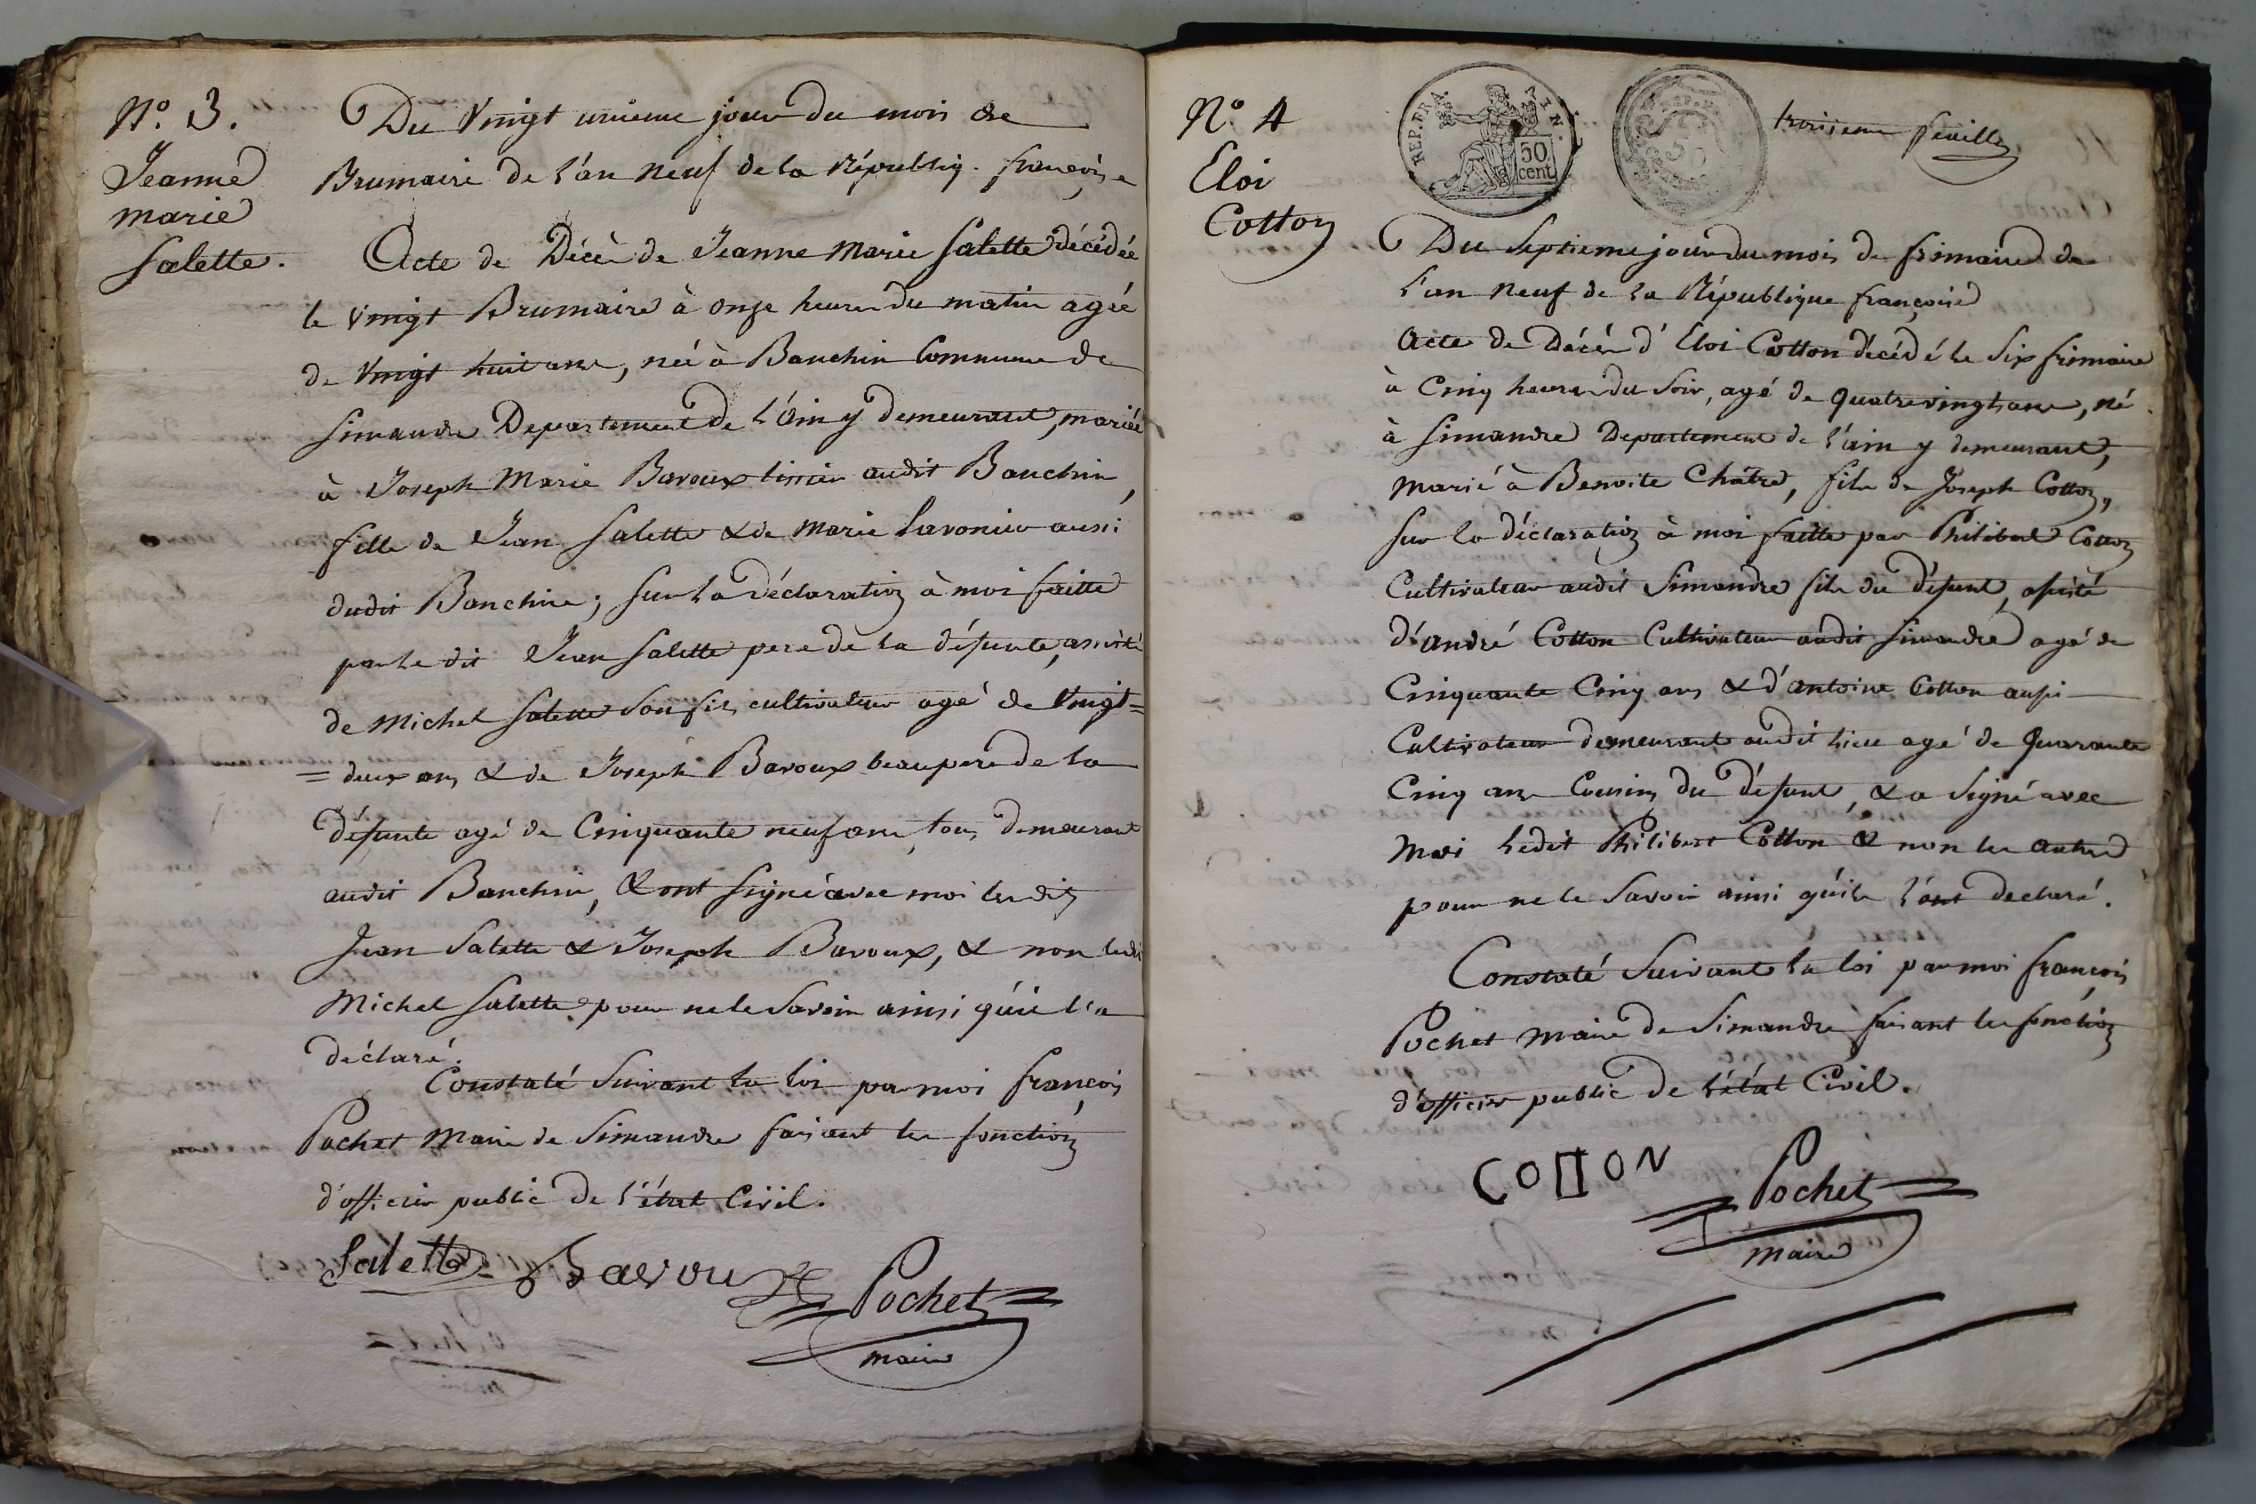 N.º 3.
Jeanne
marie
Salette.
Du Vingt unieme jour du mois de
Brumaire de l'an Neuf de la Républiq. françoise
Acte de Décès de Jeanne Marie Salette décédée
le Vingt Brumaire à onze heures du matin agée
de Vingt huit ans, née à Banchin Commune de
Simandre Departement de l'Ain y demeurant, mariée
à Joseph Marie Bavoux tissier audit Banchin,
fille de Jean Salette & de Marie Savonier aussi
dudit Banchin; sur la déclaration à moi faitte
par le dit Jean Salette pere de la défunte, assisté
de Michel Salette son fils, cultivateur agé de Vingt=
= deux ans & de Joseph Bavoux beaupere de la
défunte agé de Cinquante neuf ans, tous demeurant
audit Banchin, & ont signé avec moi lesdits
Jean Salette & Joseph Bavoux, & non ledit
Michel Salette pour ne le Savoir ainsi qu'il l'a
déclaré.
Constaté Suivant la loi par moi françois
Pochet Maire de Simandre faisant les fonctions
d'officier public de l'état Civil.
Salette Bavoux Pochet
maire
N.º 4
Eloi
Cotton
REP. FRA. 50 cent
troisieme feuille
Du Septieme jour du mois de frimaire de
l'an Neuf de la République françoise
Acte de Décès d'Eloi Cotton décédé le Six frimaire
à Cinq heures du Soir, agé de quatrevingts ans, né
à Simandre Departement de l'ain y demeurant,
Marié à Benoite Châtre, fils de Joseph Cotton,
Sur la déclaration à moi faitte par Philibert Cotton
Cultivateur audit Simandre fils du défunt, assisté
d'andré Cotton Cultivateur audit Simandre agé de
Cinquante Cinq ans & d'antoine Cotton aussi
Cultivateur demeurant audit lieu agé de Quarante
Cinq ans Cousins du défunt, & a Signé avec
Moi ledit Philibert Cotton & non les autres
pour ne le Savoir ainsi qu'ils l'ont declaré.
Constaté Suivant la loi par moi françois
Pochet Maire de Simandre faisant les fonctions
d'officier public de l'état Civil.
COTTON Pochet
maire